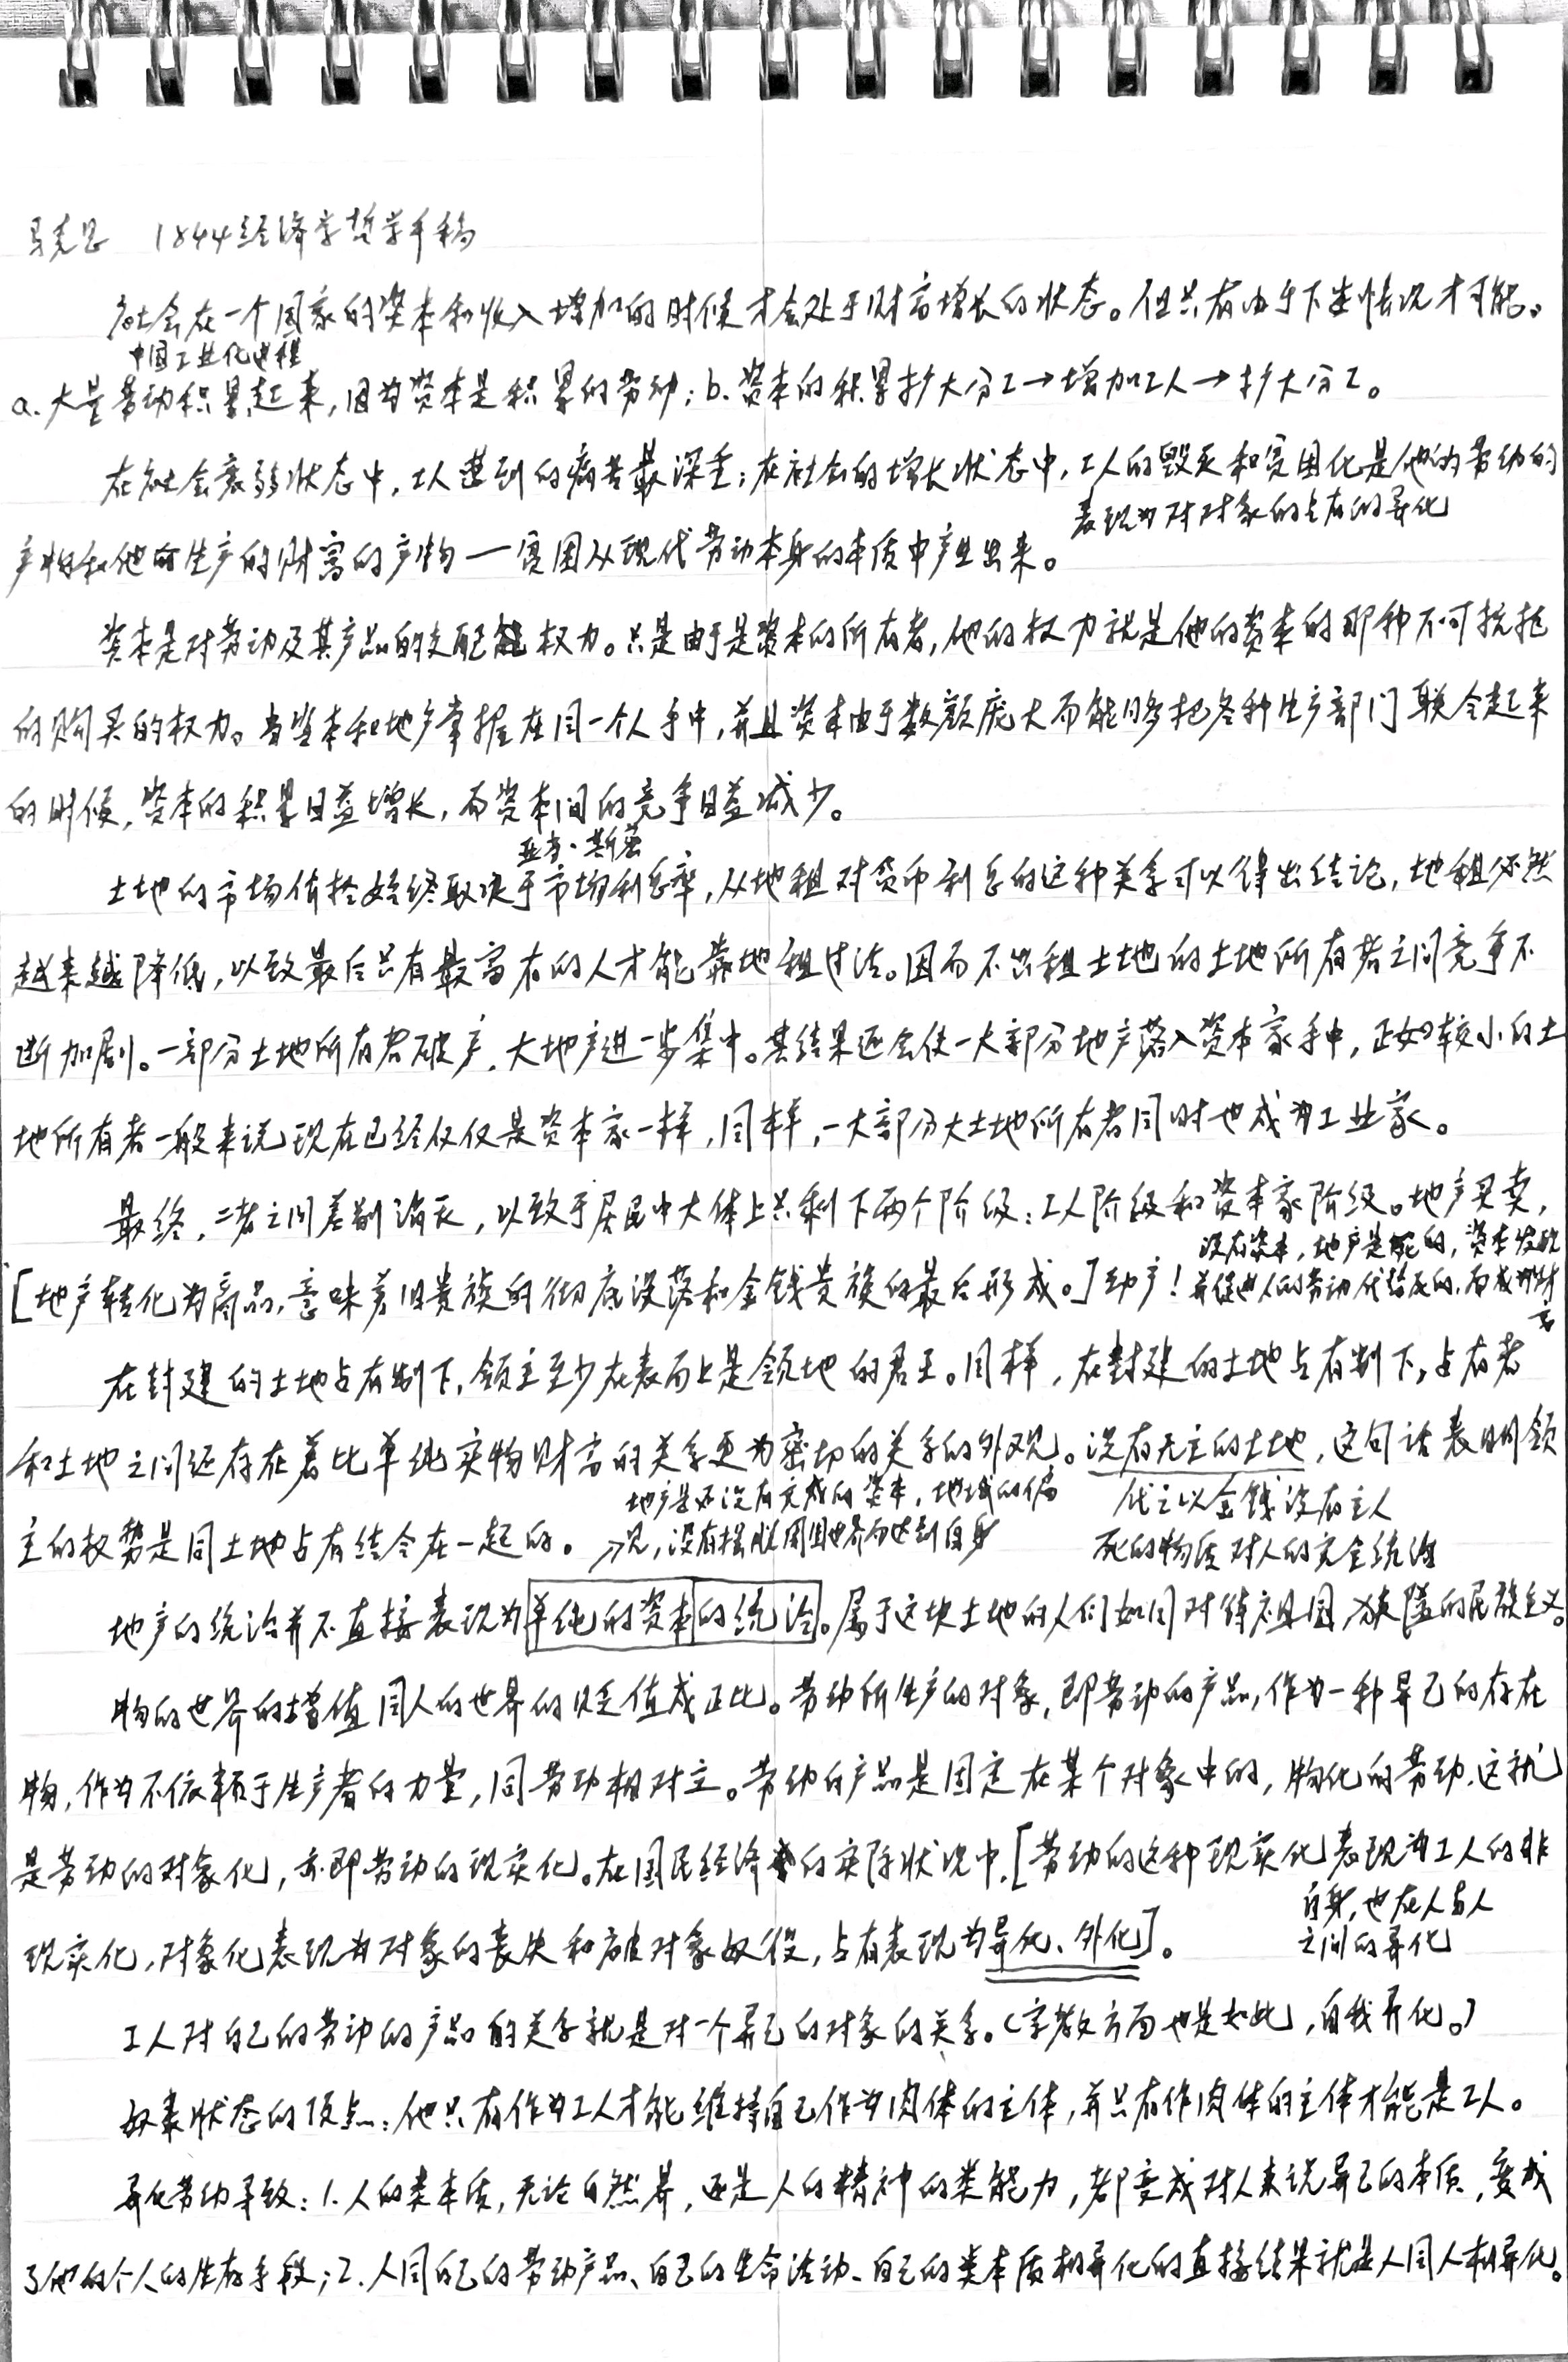 马克思 1844经济学哲学手稿
社会在一个国家的资本和收入增加的时候才会处于财富增长的状态。但只有由于下述情况才可能。
中国工业化进程
a. 大量劳动积累起来，因为资本是积累的劳动；b. 资本的积累扩大分工→增加工人→扩大分工。
在社会衰弱状态中，工人遭到的痛苦最深重；在社会的增长状态中，工人的毁灭和贫困化是他的劳动的
表现为对对象的占有的异化
产物和他所生产的财富的产物—贫困从现代劳动本身的本质中产生出来。
资本是对劳动及其产品的支配权力。只是由于是资本的所有者，他的权力就是他的资本的那种不可抗拒
的购买的权力。当资本和地产掌握在同一个人手中，并且资本由于数额庞大而能够把各种生产部门联合起来
的时候，资本的积累日益增长，而资本间的竞争日益减少。
亚当·斯密
土地的市场价格始终取决于市场利息率，从地租对货币利息的这种关系可以得出结论，地租必然
越来越降低，以致最后只有最富有的人才能靠地租过活。因而不出租土地的土地所有者之间竞争不
断加剧。一部分土地所有者破产，大地产进一步集中。其结果还会使一大部分地产落入资本家手中，正如较小的土
地所有者一般来说现在已经仅仅是资本家一样，同样，一大部分大土地所有者同时也成为工业家。
最终，二者之间差别消灭，以致于居民中大体上只剩下两个阶级：工人阶级和资本家阶级。地产买卖，
没有资本，地产是死的，资本发现
[地产转化为商品，意味着旧贵族的彻底没落和金钱贵族的最后形成。]动产！并促使人的劳动代替死的，而成为财
富
在封建的土地占有制下，领主至少在表面上是领地的君王。同样，在封建的土地占有制下，占有者
和土地之间还存在着比单纯实物财富的关系更为密切的关系的外观。没有无主的土地，这句话表明领
地产是还没有完成的资本，地域的偏 代之以金钱没有主人
主的权势是同土地占有结合在一起的。→见，没有摆脱周围世界而达到自身 死的物质对人的完全统治
地产的统治并不直接表现为单纯的资本的统治。属于这块土地的人们如同对待祖国 狭隘的民族主义。
物的世界的增值同人的世界的贬值成正比。劳动所生产的对象，即劳动的产品，作为一种异己的存在
物，作为不依赖于生产者的力量，同劳动相对立。劳动的产品是固定在某个对象中的，物化的劳动，这就
是劳动的对象化，亦即劳动的现实化。在国民经济的实际状况中，[劳动的这种现实化表现为工人的非
自身，也在人与人
现实化，对象化表现为对象的丧失和被对象奴役，占有表现为异化、外化]。 之间的异化
工人对自己的劳动的产品的关系就是对一个异己的对象的关系。（宗教方面也是如此，自我异化。）
奴隶状态的顶点：他只有作为工人才能维持自己作为肉体的主体，并只有作肉体的主体才能是工人。
异化劳动导致：1. 人的类本质，无论自然界，还是人的精神的类能力，都变成对人来说异己的本质，变成
了他的个人的生存手段；2. 人同自己的劳动产品、自己的生命活动、自己的类本质相异化的直接结果就是人同人相异化。